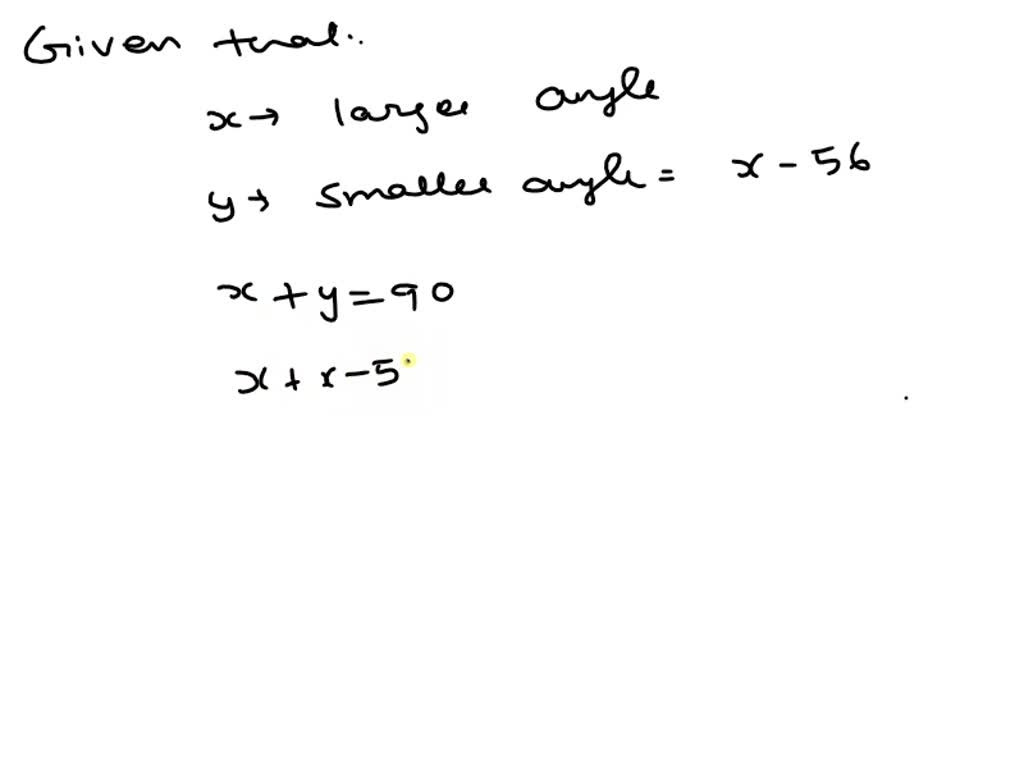 Given that:
x → larger angle
y → smaller angle = x - 56
x + y = 90
x + x - 5